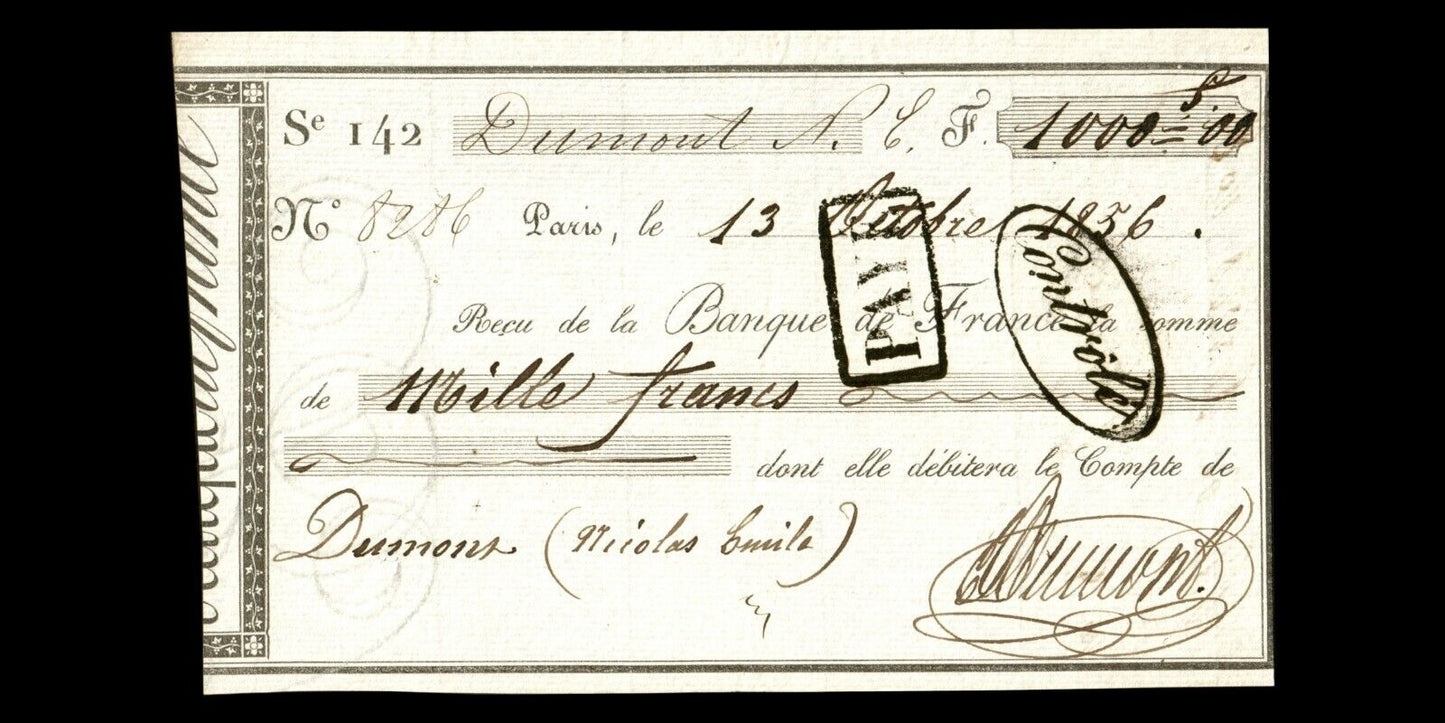 Se 142 Dumont N. E. F. 1000 f. 00
No 8286 Paris, le 13 Octobre 1856.
Reçu de la Banque de France la somme
de Mille francs
dont elle débitera le Compte de
Dumont (Nicolas Emile)
EDumont.
PAYÉ
Contrôlé